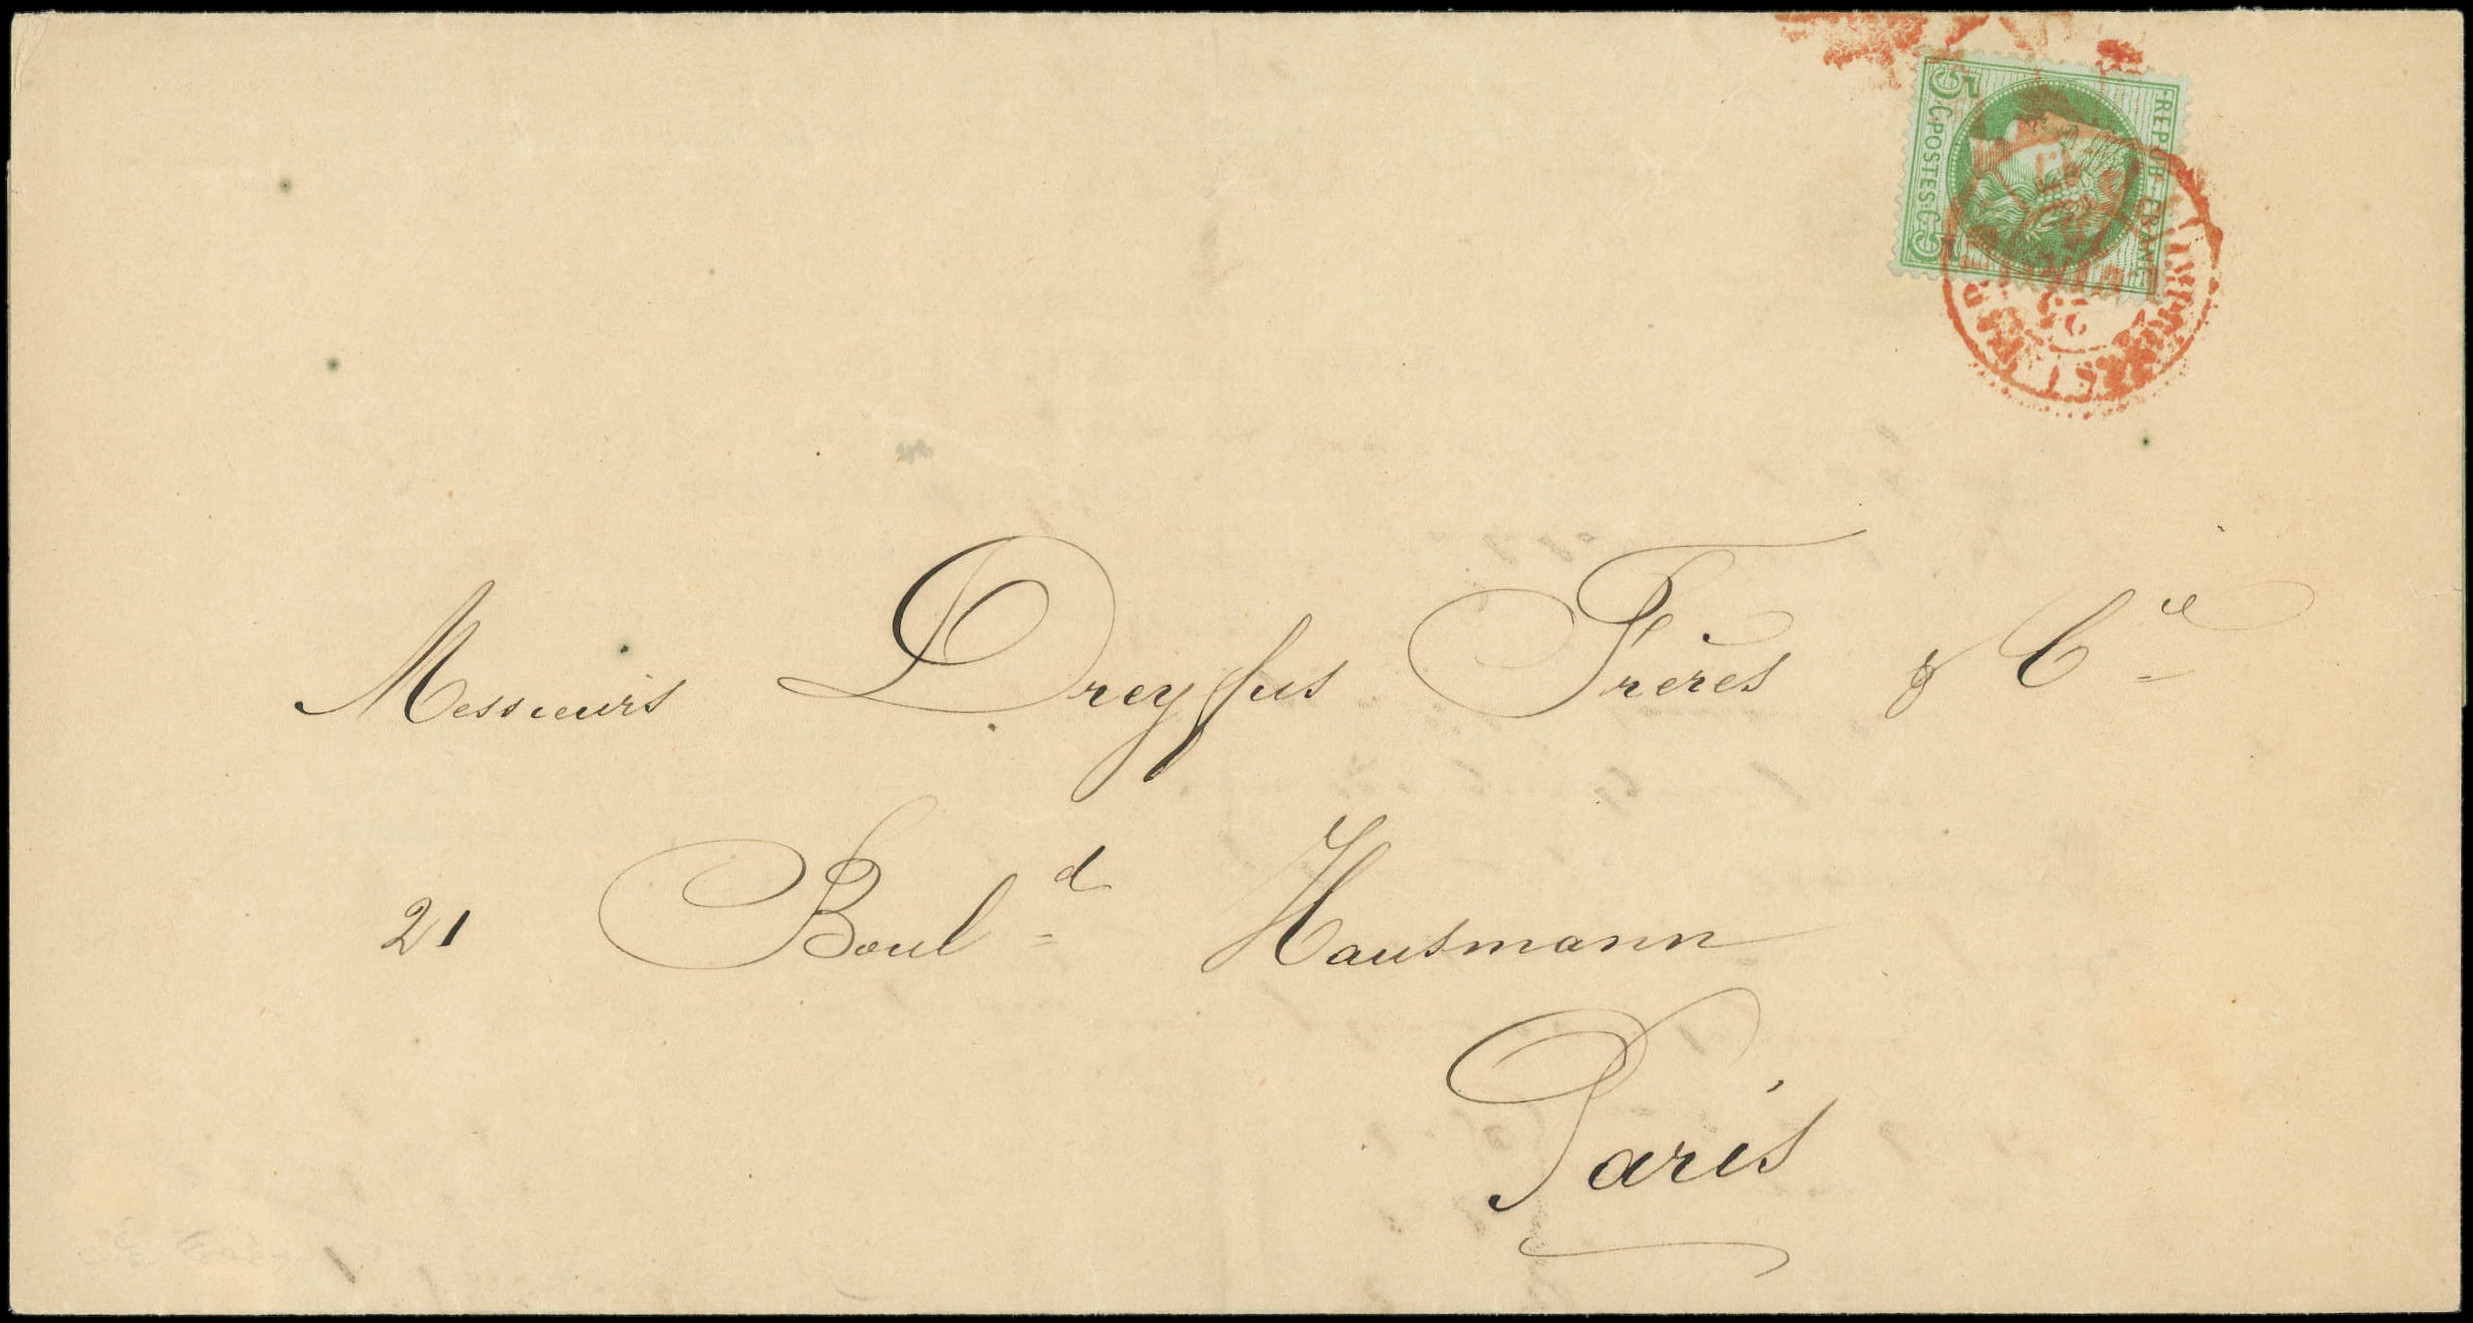 REPUB·FRANC
5·C·POSTES·C·5
Messieurs Dreyfus Frères & Cie
21 Bould Hausmann
Paris